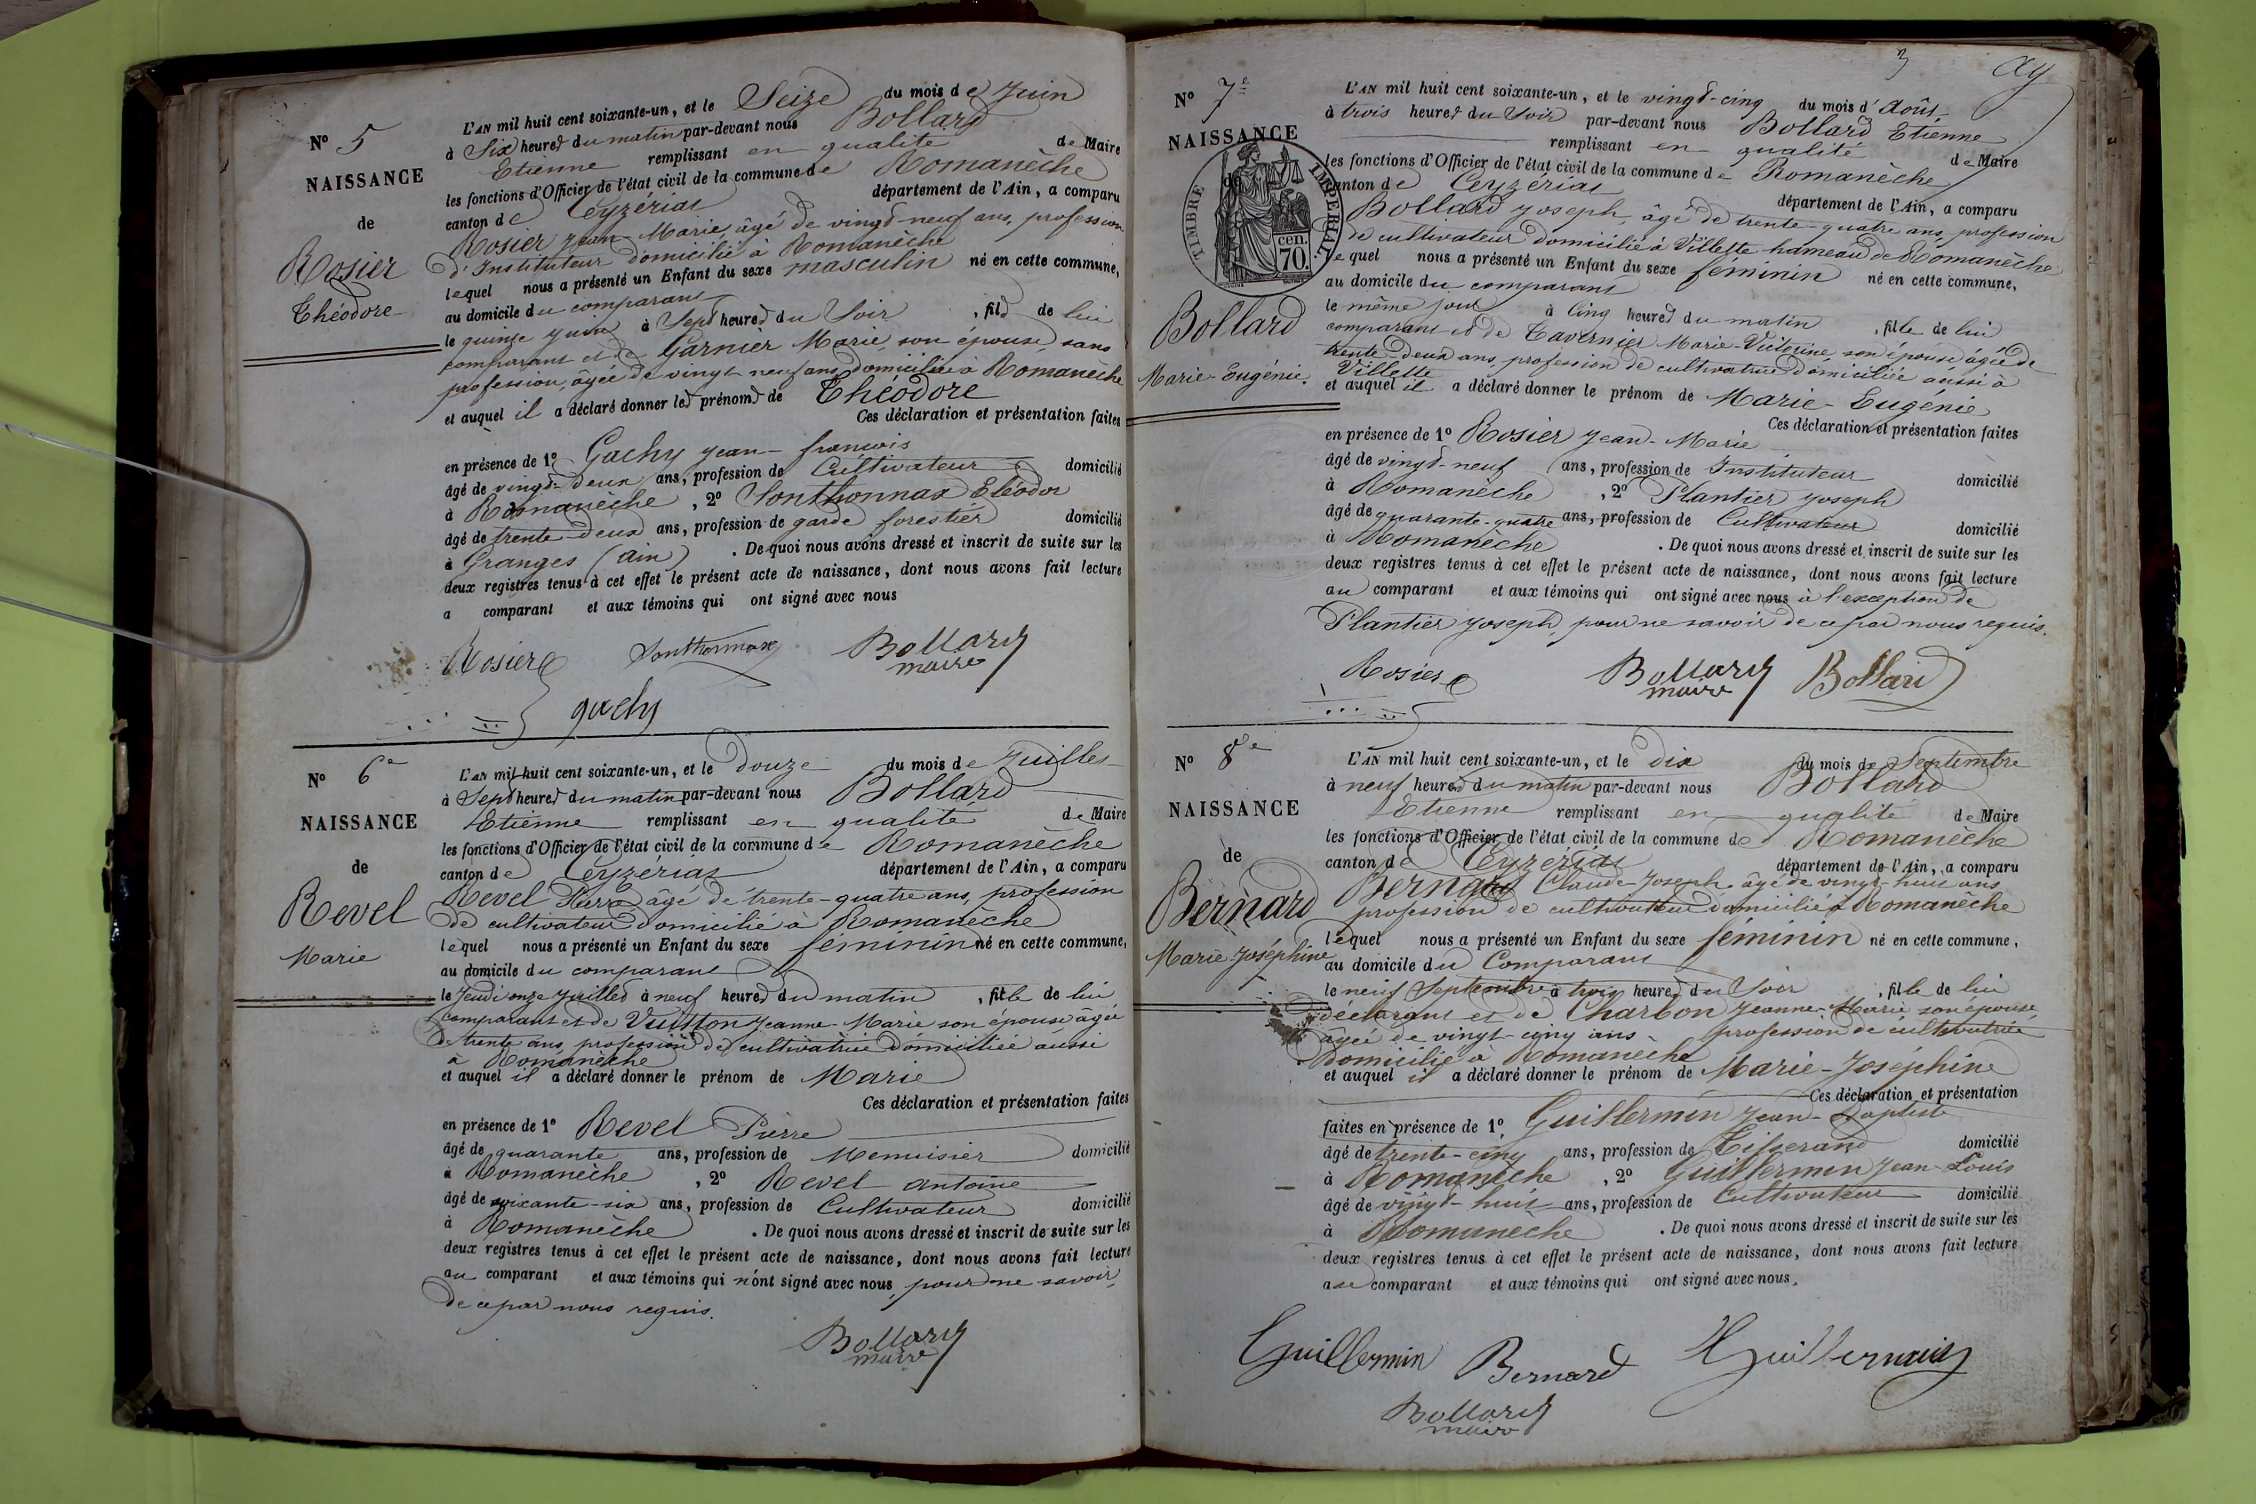 N° 5
NAISSANCE
de
Rosier
Théodore
L'AN mil huit cent soixante-un, et le Seize du mois de Juin
à Six heures du matin par-devant nous Bollard
Etienne remplissant en qualité de Maire
les fonctions d'Officier de l'état civil de la commune de Romanèche
canton de Ceyzériat département de l'Ain, a comparu
Rosier Jean-Marie âgé de vingt-neuf ans, profession
d'Instituteur domicilié à Romanèche
lequel nous a présenté un Enfant du sexe masculin né en cette commune,
au domicile du comparant
le quinze juin à Sept heures du Soir, fils de lui
comparant et de Garnier Marie, son épouse, sans
profession, âgée de vingt-neuf ans, domiciliée à Romanèche
et auquel il a déclaré donner les prénoms de Théodore
Ces déclaration et présentation faites
en présence de 1° Gachy Jean-françois
âgé de vingt-deux ans, profession de Cultivateur domicilié
à Romanèche, 2° Sonthonnax Eléodor
âgé de trente-deux ans, profession de garde forestier domicilié
à Granges (Ain). De quoi nous avons dressé et inscrit de suite sur les
deux registres tenus à cet effet le présent acte de naissance, dont nous avons fait lecture
a comparant et aux témoins qui ont signé avec nous
Rosier Sonthonnax Bollard
maire
gachy
N° 6e
NAISSANCE
de
Revel
Marie
L'AN mil huit cent soixante-un, et le douze du mois de Juillet
à Sept heures du matin par-devant nous Bollard
Etienne remplissant en qualité de Maire
les fonctions d'Officier de l'état civil de la commune de Romanèche
canton de Ceyzériat département de l'Ain, a comparu
Revel Pierre âgé de trente-quatre ans, profession
de cultivateur domicilié à Romanèche
lequel nous a présenté un Enfant du sexe féminin né en cette commune,
au domicile du comparant
le Jeudi onze Juillet à neuf heures du matin, fille de lui
comparant et de Vuitton Jeanne-Marie son épouse âgée
de trente ans, profession de cultivatrice domiciliée aussi
à Romanèche
et auquel il a déclaré donner le prénom de Marie
Ces déclaration et présentation faites
en présence de 1° Revel Pierre
âgé de quarante ans, profession de Menuisier domicilié
à Romanèche, 2° Revel antoine
âgé de soixante-six ans, profession de Cultivateur domicilié
à Romanèche. De quoi nous avons dressé et inscrit de suite sur les
deux registres tenus à cet effet le présent acte de naissance, dont nous avons fait lecture
au comparant et aux témoins qui n'ont signé avec nous, pour ne savoir,
de ce par nous requis.
Bollard
maire
3
N° 7e
NAISSANCE
de
TIMBRE IMPERIAL
70 cen.
Bollard
Marie-Eugénie.
L'AN mil huit cent soixante-un, et le vingt-cinq du mois d'Août
à trois heures du Soir par-devant nous Bollard Etienne
remplissant en qualité de Maire
les fonctions d'Officier de l'état civil de la commune de Romanèche
canton de Ceyzériat département de l'Ain, a comparu
Bollard Joseph, âgé de trente-quatre ans, profession
de cultivateur domicilié à Villette hameau de Romanèche
lequel nous a présenté un Enfant du sexe féminin né en cette commune,
au domicile du comparant
le même jour à Cinq heures du matin, fille de lui
comparant et de Tavernier Marie-Victorine son épouse âgée de
trente-deux ans, profession de cultivatrice domiciliée aussi à
Villette
et auquel il a déclaré donner le prénom de Marie-Eugénie
Ces déclaration et présentation faites
en présence de 1° Rosier Jean-Marie
âgé de vingt-neuf ans, profession de Instituteur domicilié
à Romanèche, 2° Plantier Joseph
âgé de quarante-quatre ans, profession de Cultivateur domicilié
à Romanèche. De quoi nous avons dressé et inscrit de suite sur les
deux registres tenus à cet effet le présent acte de naissance, dont nous avons fait lecture
au comparant et aux témoins qui ont signé avec nous à l'exception de
Plantier Joseph, pour ne savoir de ce par nous requis.
Rosier Bollard Bollard
maire
N° 8e
NAISSANCE
de
Bernard
Marie Joséphine
L'AN mil huit cent soixante-un, et le dix du mois de Septembre
à neuf heures du matin par-devant nous Bollard
Etienne remplissant en qualité de Maire
les fonctions d'Officier de l'état civil de la commune de Romanèche
canton de Ceyzériat département de l'Ain, a comparu
Bernard Claude-Joseph âgé de vingt-huit ans
profession de cultivateur domicilié à Romanèche
lequel nous a présenté un Enfant du sexe féminin né en cette commune,
au domicile du Comparant
le neuf Septembre à trois heures du Soir, fille de lui
déclarant et de Charbon Jeanne-Marie son épouse,
âgée de vingt-cinq ans profession de cultivatrice
domicilié à Romanèche
et auquel il a déclaré donner le prénom de Marie-Joséphine
Ces déclaration et présentation
faites en présence de 1° Guillermin Jean-Baptiste
âgé de trente-cinq ans, profession de Tisserand domicilié
à Romanèche, 2° Guillermin Jean-Louis
âgé de vingt-huit ans, profession de Cultivateur domicilié
à Romanèche. De quoi nous avons dressé et inscrit de suite sur les
deux registres tenus à cet effet le présent acte de naissance, dont nous avons fait lecture
au comparant et aux témoins qui ont signé avec nous.
Guillermin Bernard Guillermin
Bollard
maire